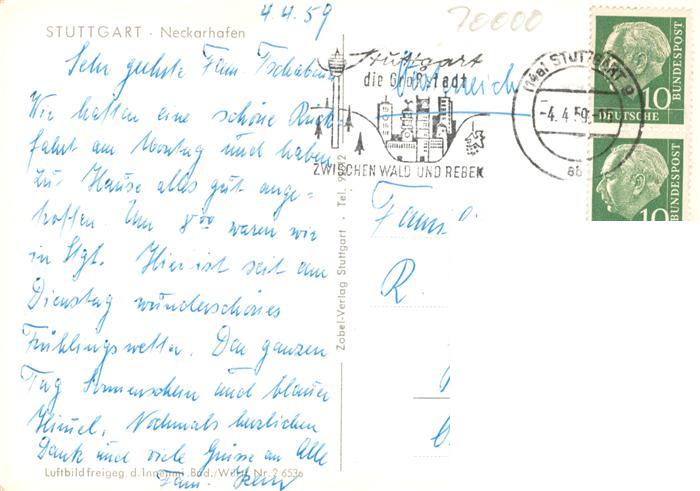 4.4.59
70000
STUTTGART · Neckarhafen
Sehr geehrte Fam.
Wir hatten eine schöne Rück-
fahrt am Montag und haben
zu Hause alles gut ange-
troffen. Um 8 00 waren wir
in Stgt. Hier ist seit am
Dienstag wunderschönes
Frühlingswetter. Den ganzen
Tag Sonnenschein und blauer
Himmel. Nochmals herzlichen
Dank und viele Grüsse an Alle
Fam.
Luftbild freigeg. d. Innenmi. Bad./Württ. Nr. 2 6536
Zobel-Verlag Stuttgart · Tel.
Stuttgart
die Großstadt
ZWISCHEN WALD UND REBEN
Österreich
(14a) STUTTGART 9
-4.4.59
DEUTSCHE BUNDESPOST
10
BUNDESPOST
10
Famil
R